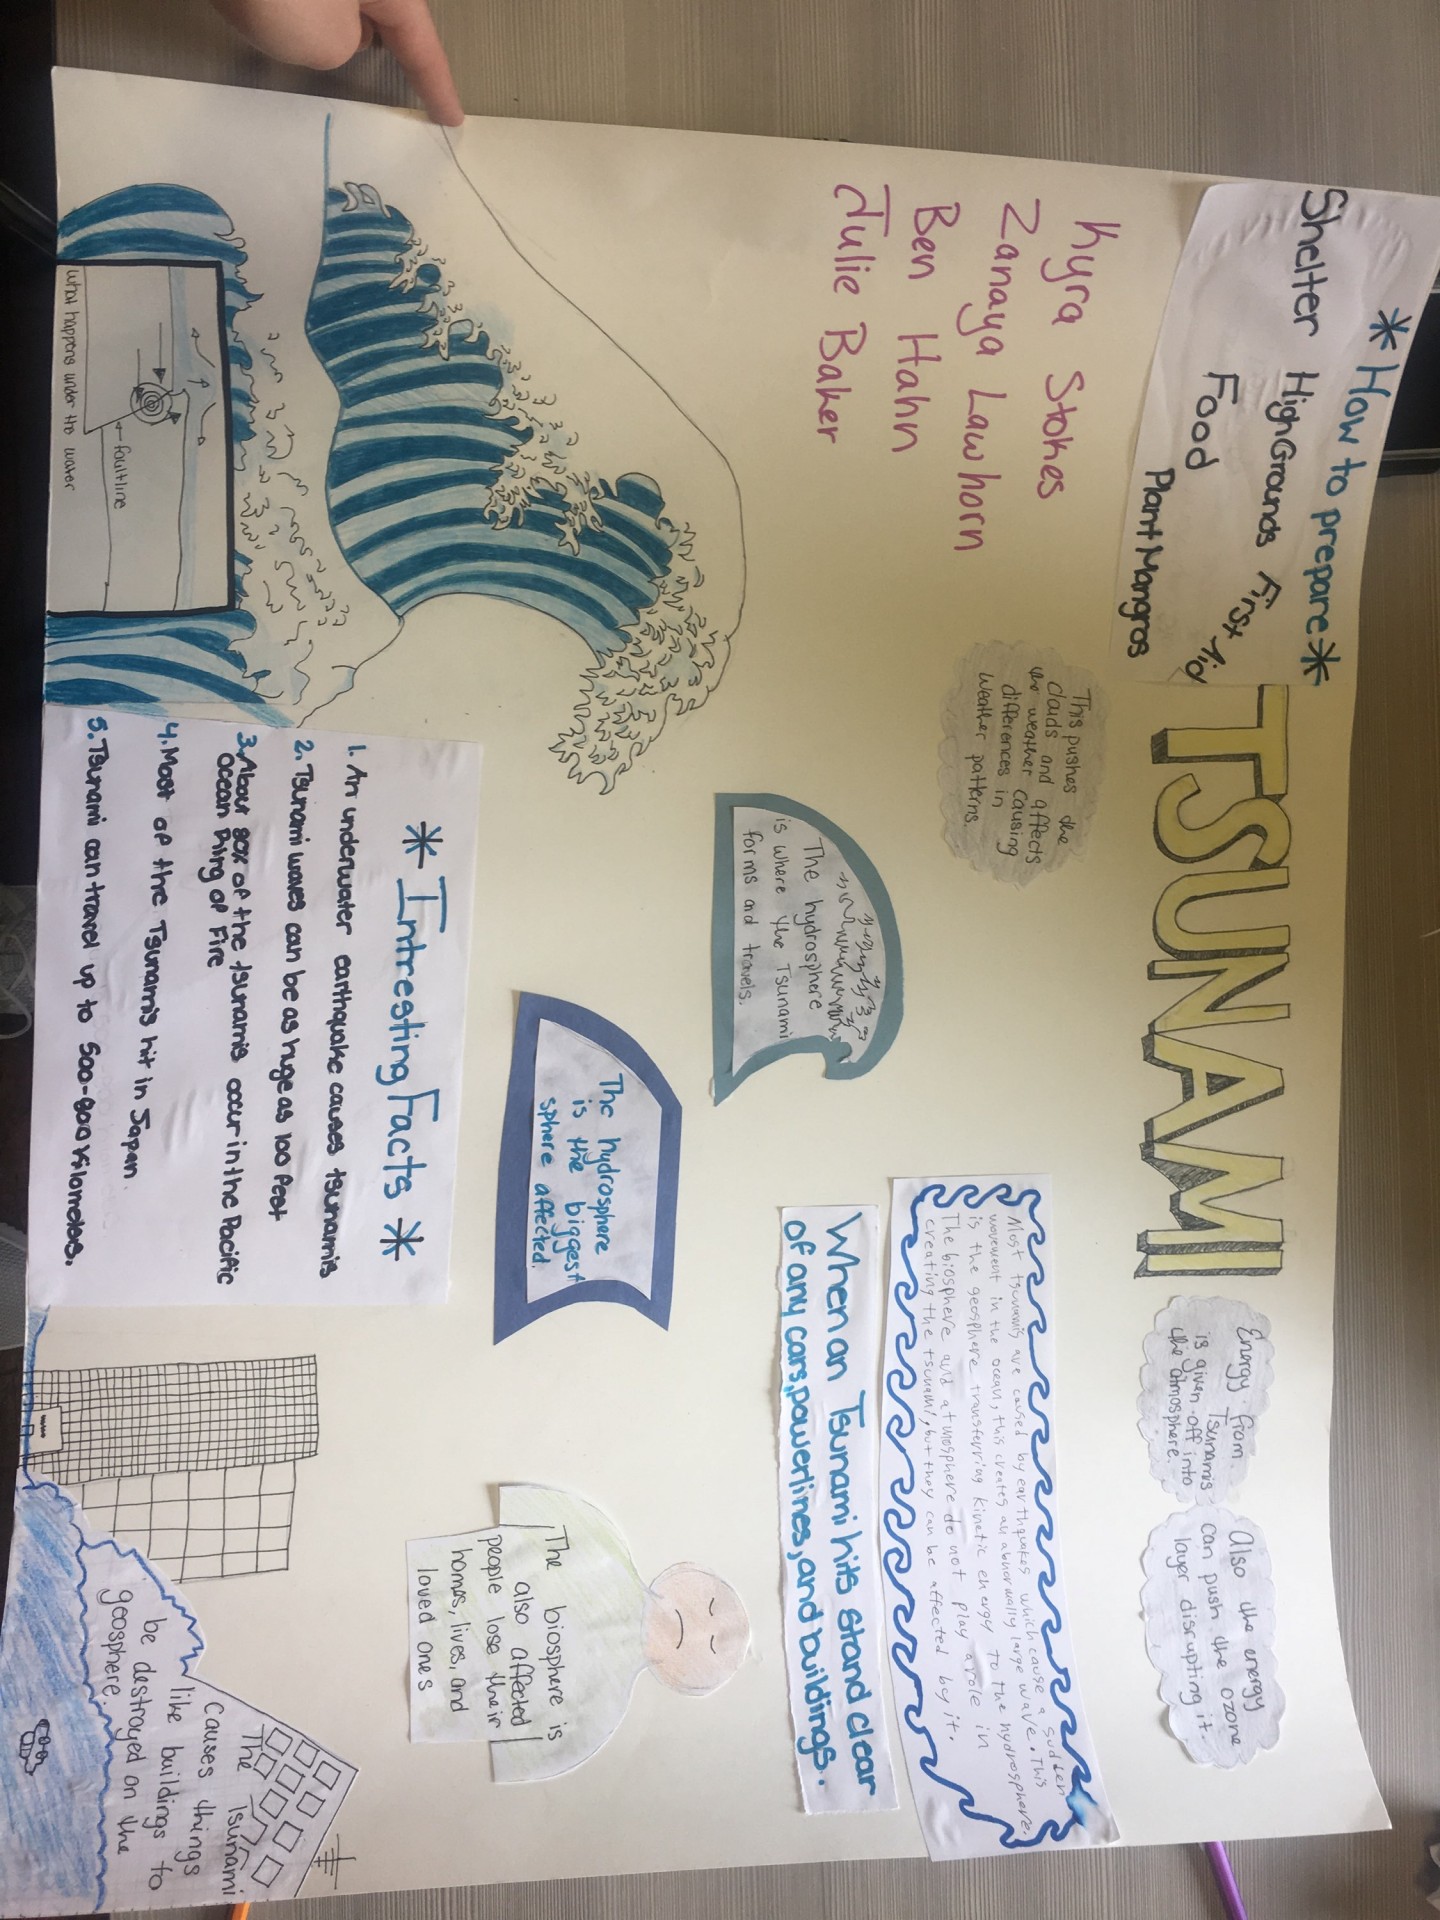 * How to prepare *
Shelter HighGrounds First Aid
Food
Plant Mangros
TSUNAMI
Energy from
Tsunamis
is given off into
the atmosphere.
Also the energy
can push the ozone
layer disrupting it.
Kyra Stokes
Zanaya Lawhorn
Ben Hahn
Julie Baker
This pushes the
clouds and affects
the weather causing
differences in
weather patterns.
Most tsunamis are caused by earthquakes which cause a sudden
movement in the ocean, this creates an abnormally large wave. This
is the geosphere transferring kinetic energy to the hydrosphere.
The biosphere and atmosphere do not play a role in
creating the tsunami, but they can be affected by it.
The hydrosphere
is where the Tsunami
forms and travels.
When an Tsunami hits stand clear
of any cars, powerlines, and buildings.
The hydrosphere
is the biggest
sphere affected.
The biosphere is
also affected
people lose their
homes, lives, and
loved ones
* Intresting Facts *
1. An underwater earthquake causes tsunamis
2. Tsunami waves can be as huge as 100 feet
3. About 80% of the tsunamis occur in the Pacific
Ocean Ring of Fire
4. Most of the Tsunamis hit in Japan.
5. Tsunami can travel up to 500-800 kilometers.
faultline
What happens under the water
The Tsunami
causes things
like buildings to
be destroyed on the
geosphere.